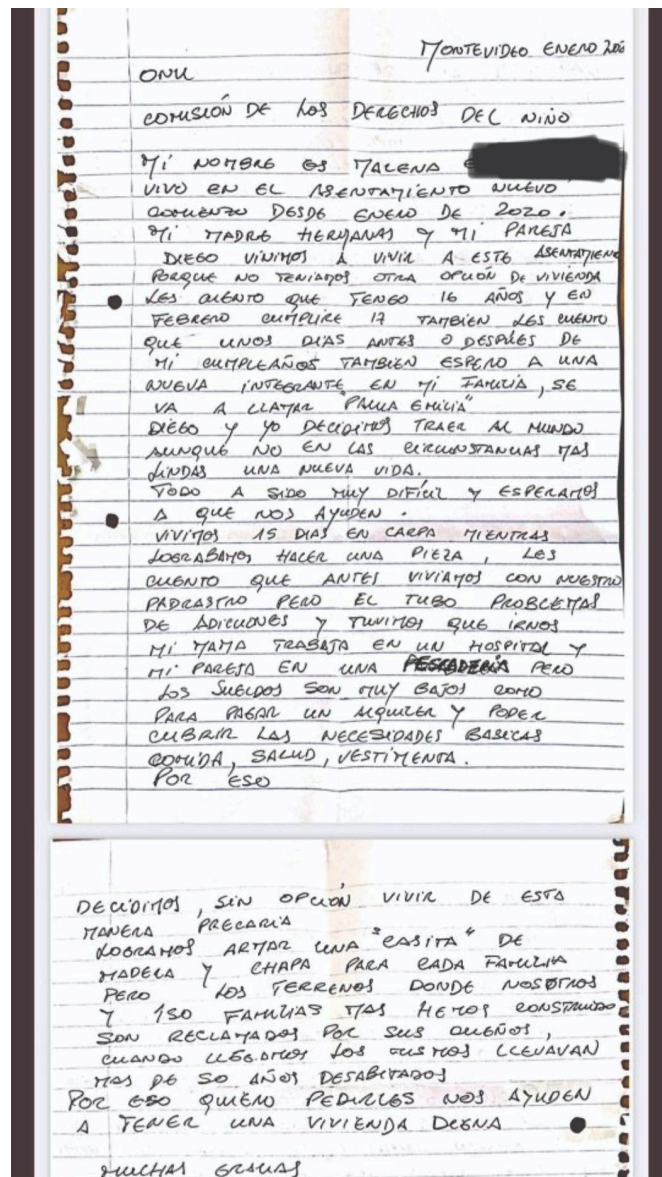 MONTEVIDEO ENERO 202
ONU
COMISIÓN DE LOS DERECHOS DEL NIÑO
MI NOMBRE ES MALENA
VIVO EN EL ASENTAMIENTO NUEVO
COMIENZO DESDE ENERO DE 2020.
MI MADRE HERMANAS Y MI PAREJA
DIEGO VINIMOS A VIVIR A ESTE ASENTAMIEN
PORQUE NO TENIAMOS OTRA OPCIÓN DE VIVIENDA
LES CUENTO QUE TENGO 16 AÑOS Y EN
FEBRERO CUMPLIRE 17 TAMBIEN LES CUENTO
QUE UNOS DIAS ANTES O DESPUES DE
MI CUMPLEAÑOS TAMBIEN ESPERO A UNA
NUEVA INTEGRANTE EN MI FAMILIA, SE
VA A LLAMAR "PAULA EMILIA"
DIEGO Y YO DECIDIMOS TRAER AL MUNDO
AUNQUE NO EN LAS CIRCUNSTANCIAS MAS
LINDAS UNA NUEVA VIDA.
TODO A SIDO MUY DIFÍCIL Y ESPERAMOS
A QUE NOS AYUDEN.
VIVIMOS 15 DIAS EN CARPA MIENTRAS
LOGRABAMOS HACER UNA PIEZA, LES
CUENTO QUE ANTES VIVIAMOS CON NUESTRO
PADRASTRO PERO EL TUBO PROBLEMAS
DE ADICCIONES Y TUVIMOS QUE IRNOS
MI MAMA TRABAJA EN UN HOSPITAL Y
MI PAREJA EN UNA PESCADERÍA PERO
LOS SUELDOS SON MUY BAJOS COMO
PARA PAGAR UN ALQUILER Y PODER
CUBRIR LAS NECESIDADES BASICAS
COMIDA, SALUD, VESTIMENTA.
POR ESO
DECIDIMOS, SIN OPCIÓN VIVIR DE ESTA
MANERA PRECARIA
LOGRAMOS ARMAR UNA "CASITA" DE
MADERA Y CHAPA PARA CADA FAMILIA
PERO LOS TERRENOS DONDE NOSOTROS
Y 150 FAMILIAS MAS HEMOS CONSTRUIDO
SON RECLAMADOS POR SUS DUEÑOS,
CUANDO LLEGAMOS LOS MISMOS LLEVAVAN
MAS DE 50 AÑOS DESABITADOS
POR ESO QUIERO PEDIRLES NOS AYUDEN
A TENER UNA VIVIENDA DIGNA
MUCHAS GRACIAS